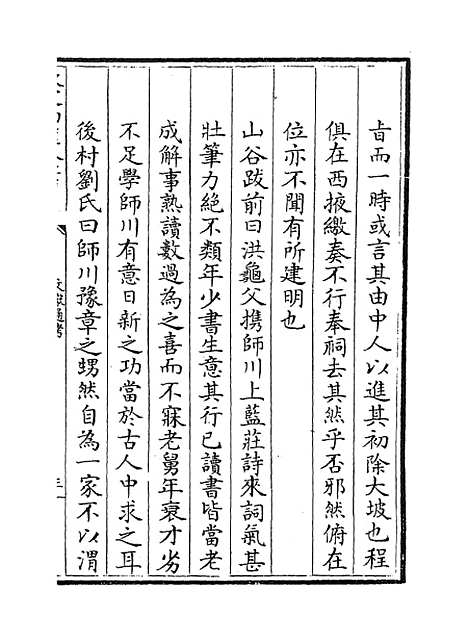 旨而一時或言其由中人以進其初除大坡也程
俱在西掖繳奏不行奉祠去其然乎否邪然俯在
位亦不聞有所建明也
山谷跋前曰洪龜父攜師川上藍莊詩來詞氣甚
壯筆力絶不類年少書生意其行已讀書皆當老
成解事熟讀數過為之喜而不寐老舅年衰才劣
不足學師川有意日新之功當於古人中求之耳
後村劉氏曰師川豫章之甥然自為一家不以渭
文獻通考